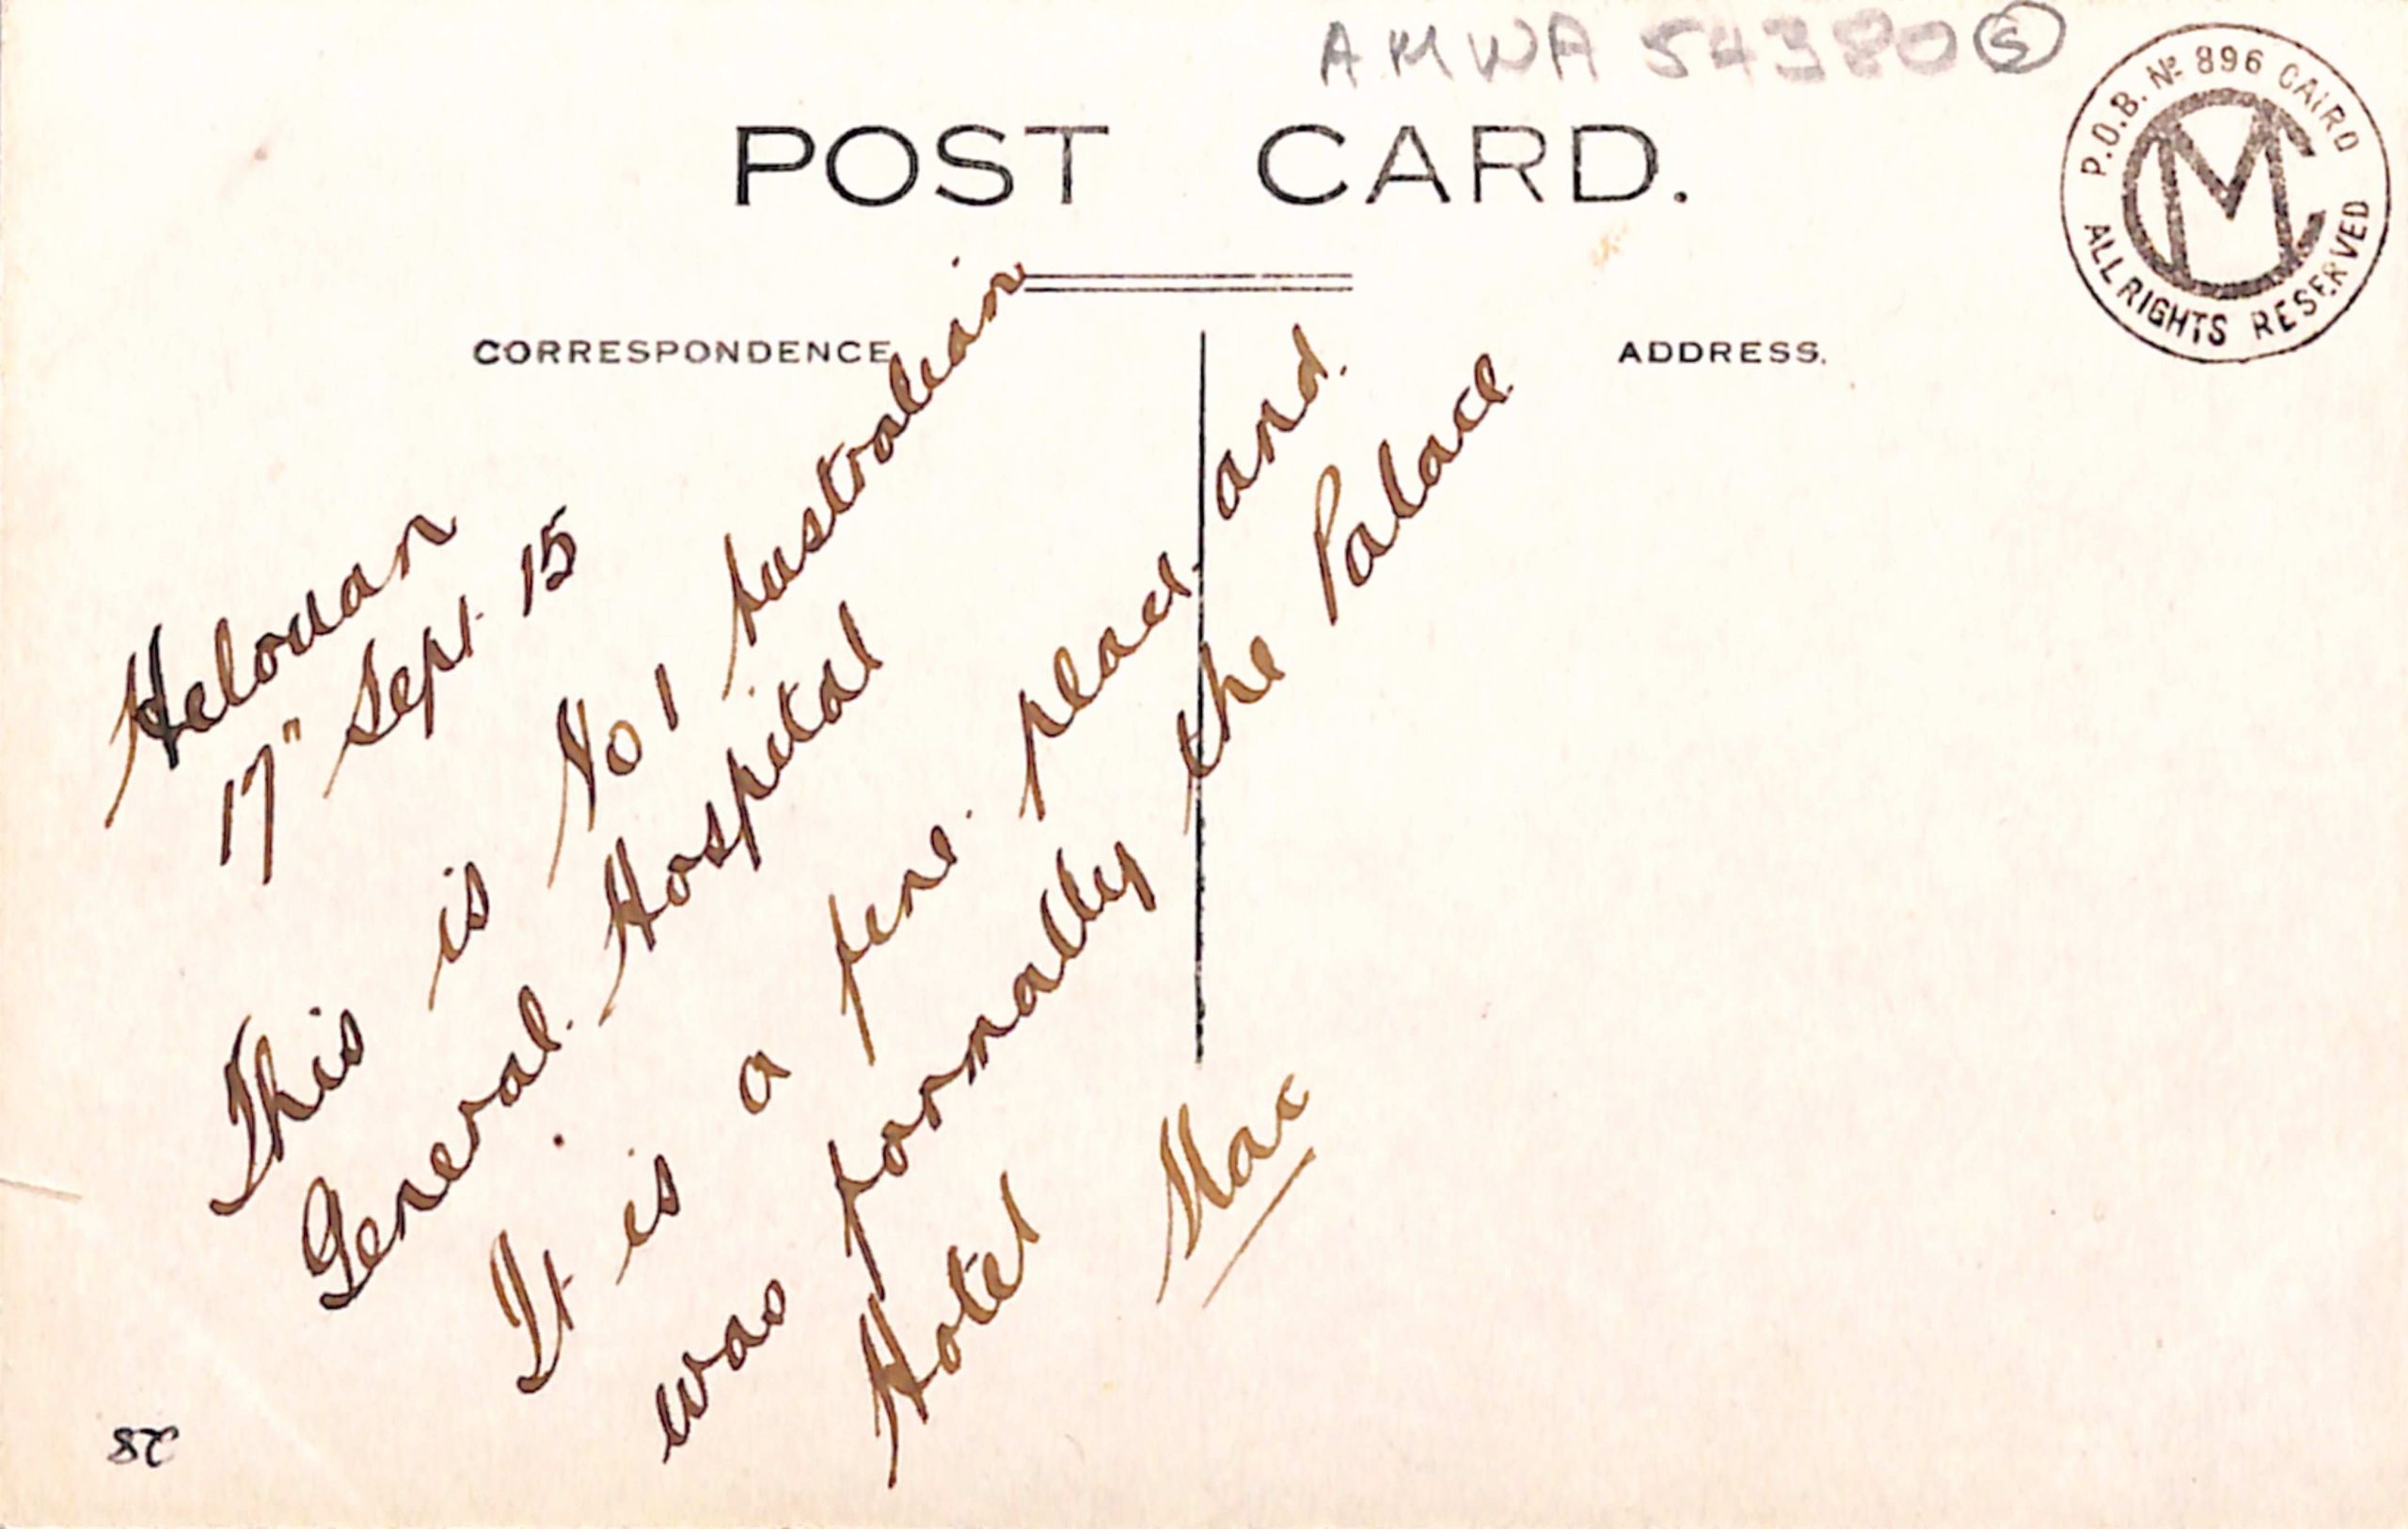 AMWA 54380 S
P.O.B. Nº 896 CAIRO
CM
ALL RIGHTS RESERVED
POST CARD.
CORRESPONDENCE
ADDRESS.
Helouan
17" Sept. 15
This is No 1 Australian
General Hospital
It is a fine place and.
was formally the Palace
Hotel
Mac
28